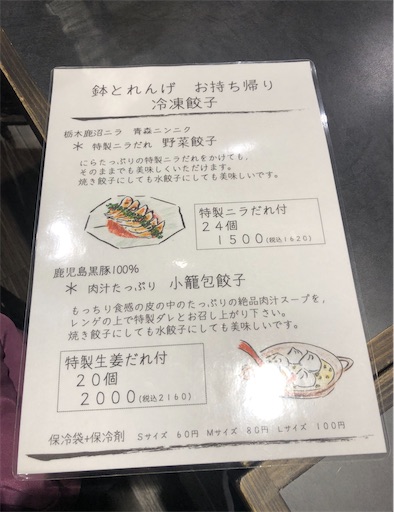 鉢とれんげ　お持ち帰り
冷凍餃子
栃木鹿沼ニラ　青森ニンニク
＊ 特製ニラだれ　野菜餃子
にらたっぷりの特製ニラだれをかけても、
そのままでも美味しくいただけます。
焼き餃子にしても水餃子にしても美味しいです。
特製ニラだれ付
２４個
１５００(税込1620)
鹿児島黒豚100%
＊ 肉汁たっぷり　小籠包餃子
もっちり食感の皮の中のたっぷりの絶品肉汁スープを、
レンゲの上で特製ダレとお召し上がり下さい。
焼き餃子にしても水餃子にしても美味しいです。
特製生姜だれ付
２０個
２０００(税込2160)
保冷袋+保冷剤　Ｓサイズ　６０円　Ｍサイズ　８０円　Ｌサイズ　１００円